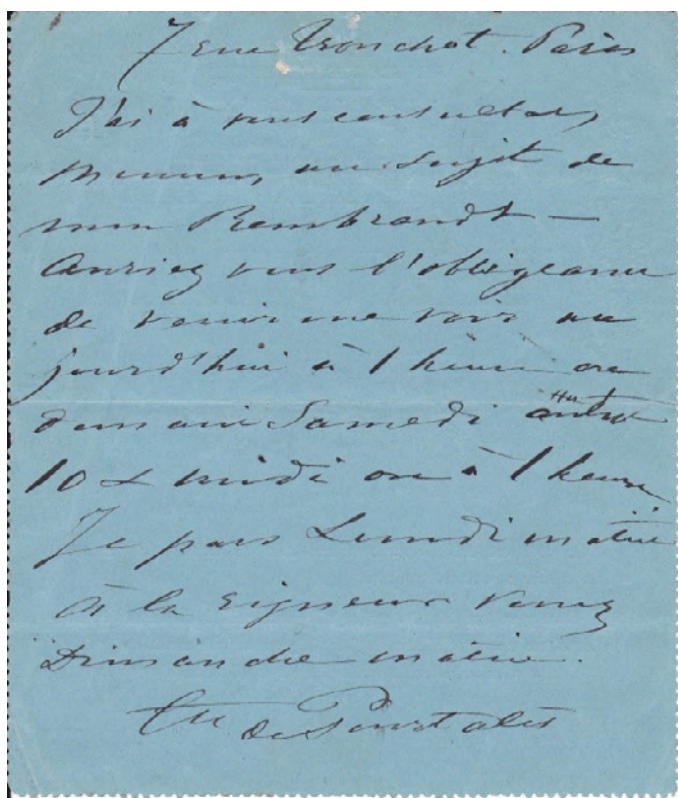 7 rue Tronchet. Paris
J'ai à vous consulter,
Monsieur, au sujet de
mon Rembrandt —
Auriez vous l'obligeance
de venir me voir au
jourd'hui à 1 heure ou
demain Samedi entre
10 & midi ou à 1 heure
Je pars Lundi matin
A la rigueur venez
Dimanche matin.
de Pourtalès